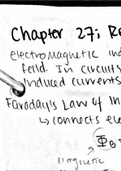 Chapter 27: Re
electromagnetic ind
feild. In circuits
induced currents
Faradays Law of In
↳ connects ele
ΦB =
magnetic